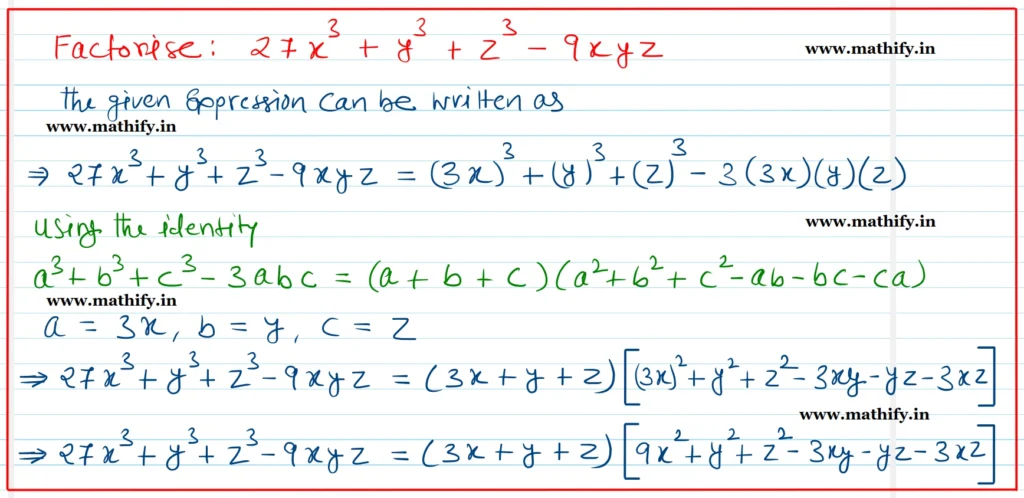 Factorise: 27x³ + y³ + z³ - 9xyz
www.mathify.in
the given Expression can be written as
www.mathify.in
⇒ 27x³ + y³ + z³ - 9xyz = (3x)³ + (y)³ + (z)³ - 3(3x)(y)(z)
using the identity
www.mathify.in
a³ + b³ + c³ - 3abc = (a + b + c)(a² + b² + c² - ab - bc - ca)
www.mathify.in
a = 3x, b = y, c = z
⇒ 27x³ + y³ + z³ - 9xyz = (3x + y + z)[(3x)² + y² + z² - 3xy - yz - 3xz]
www.mathify.in
⇒ 27x³ + y³ + z³ - 9xyz = (3x + y + z)[9x² + y² + z² - 3xy - yz - 3xz]